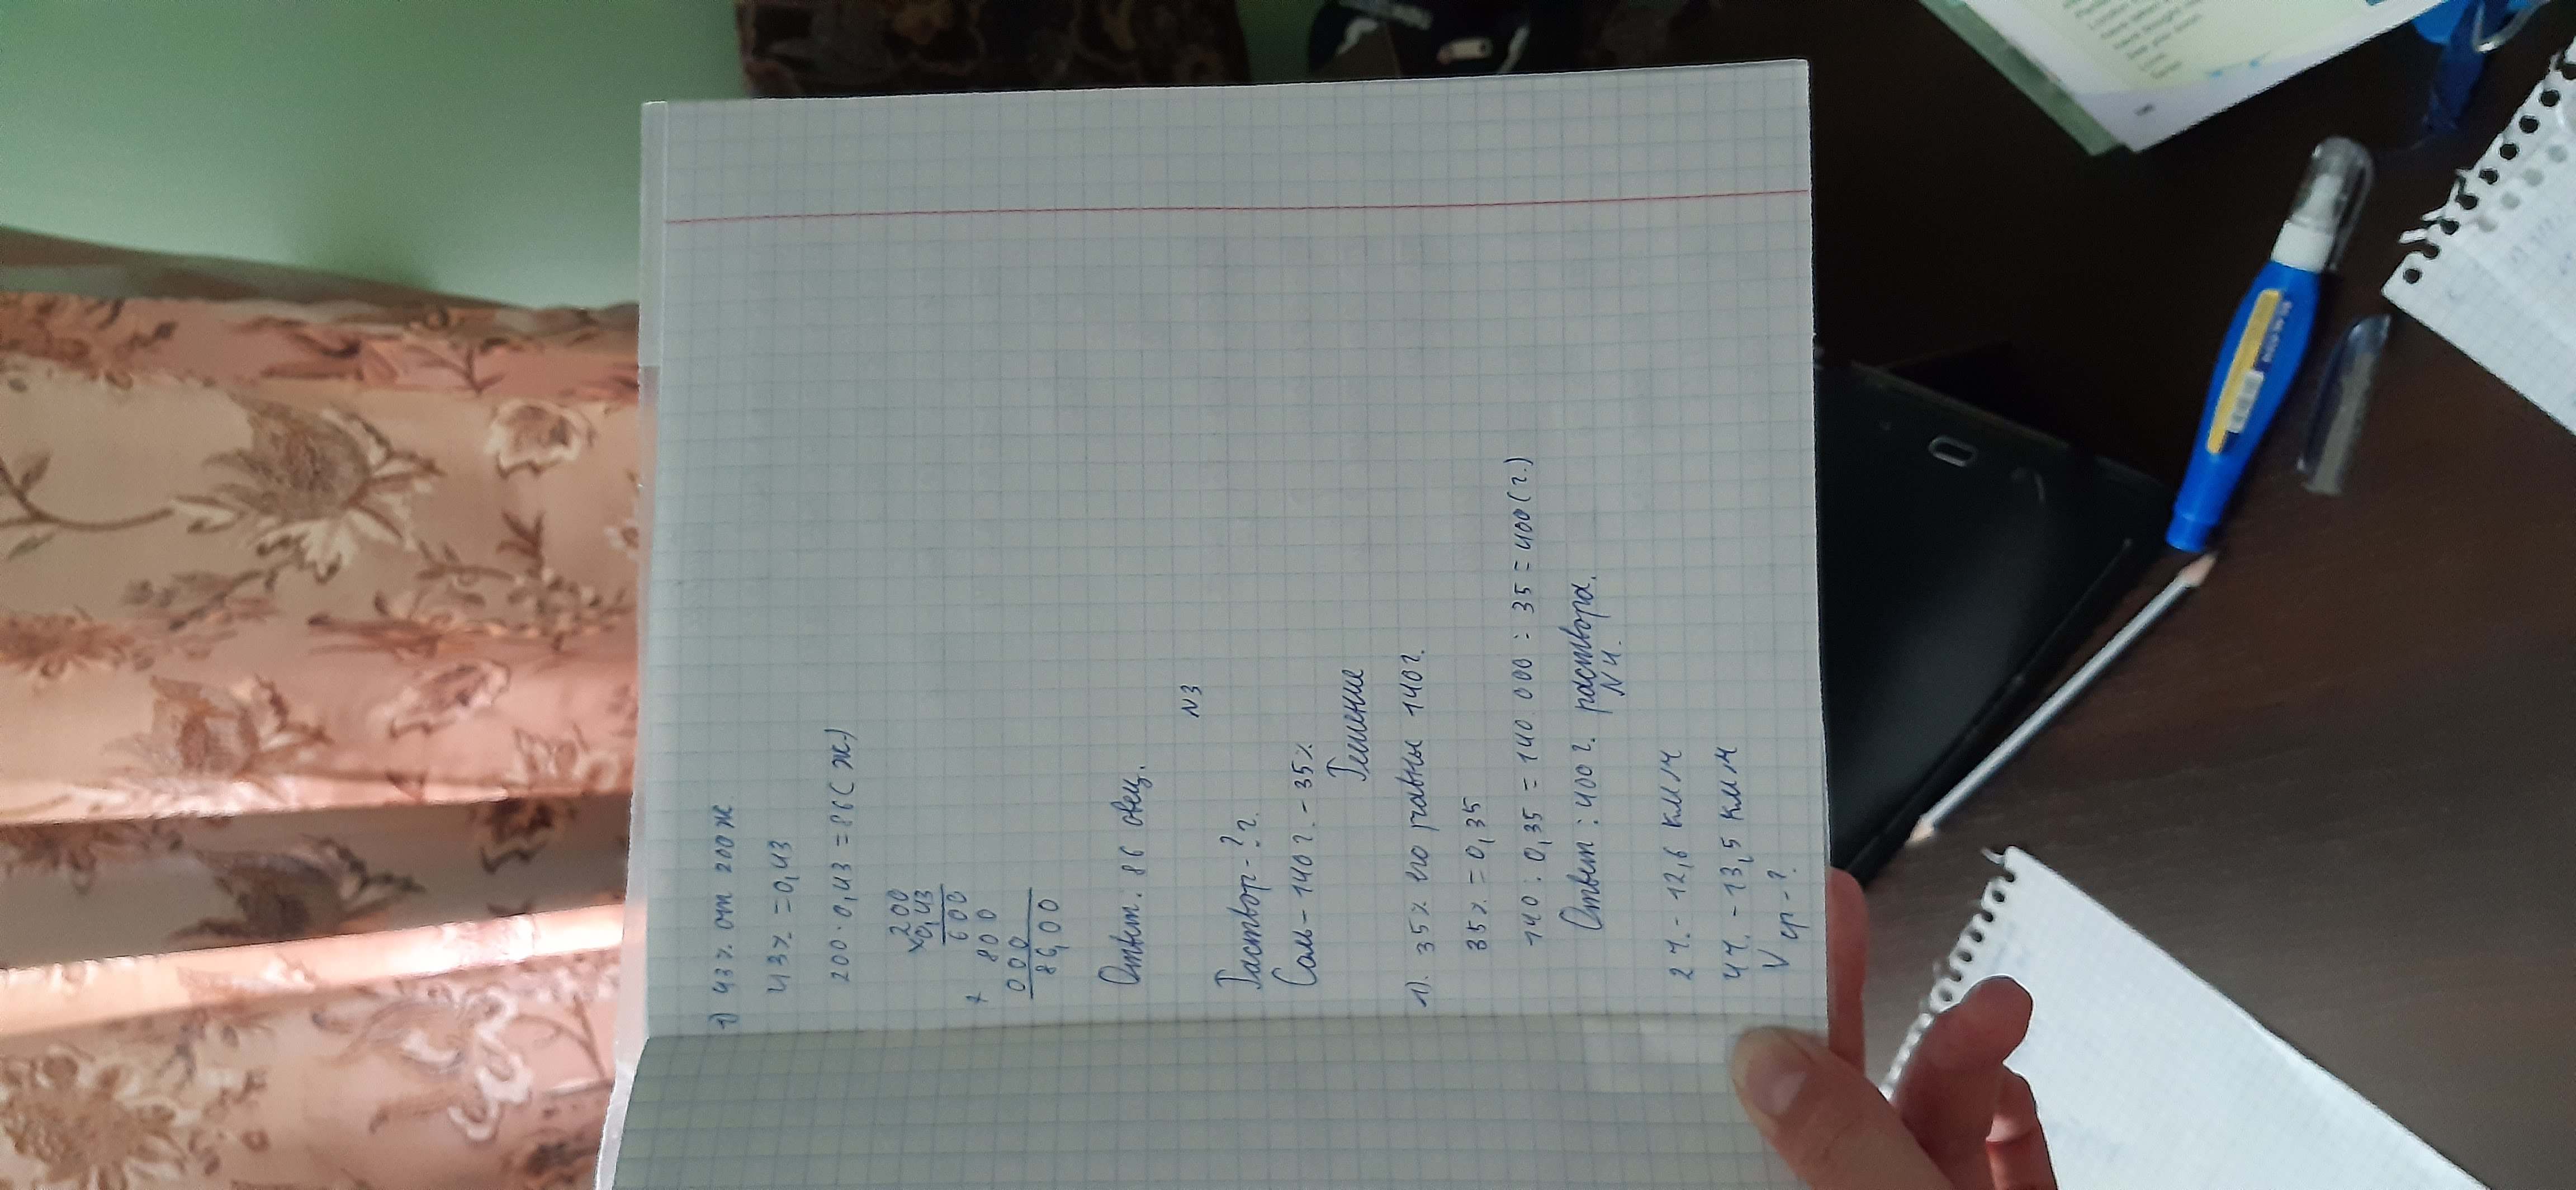 1) 43% от 200ж
43% = 0,43
200 · 0,43 = 86(ж)
200
×0,43
600
+ 800
000
86,00
Ответ: 86 овец.
N3
Раствор - ? г.
Соль - 140 г. - 35%
Решение
1). 35% его равны 140г.
35% = 0,35
140 : 0,35 = 140 000 : 35 = 400(г.)
Ответ: 400 г. раствора.
N4.
2ч. - 12,6 км/ч
4ч. - 13,5 км/ч
V ср - ?